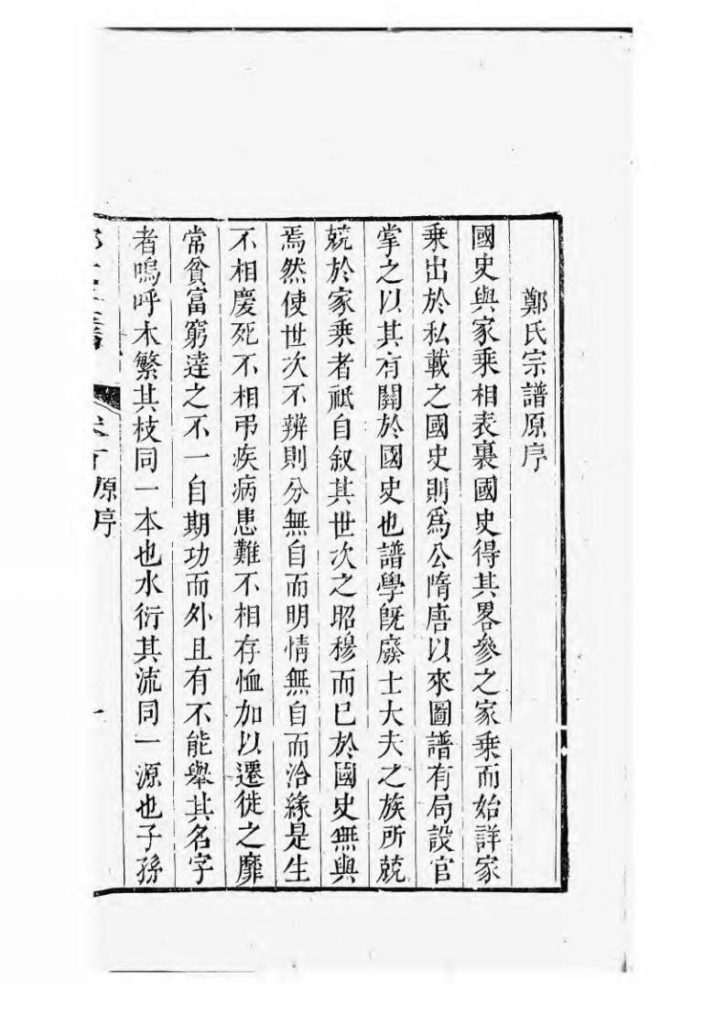 鄭氏宗譜原序
國史與家乘相表裏國史得其畧參之家乘而始詳家
乘出於私載之國史則爲公隋唐以來圖譜有局設官
掌之以其有關於國史也譜學旣廢士大夫之族所兢
兢於家乘者祇自叙其世次之昭穆而已於國史無與
焉然使世次不辨則分無自而明情無自而洽緣是生
不相慶死不相弔疾病患難不相存恤加以遷徙之靡
常貧富窮達之不一自期功而外且有不能舉其名字
者嗚呼木繁其枝同一本也水衍其流同一源也子孫
原序
一